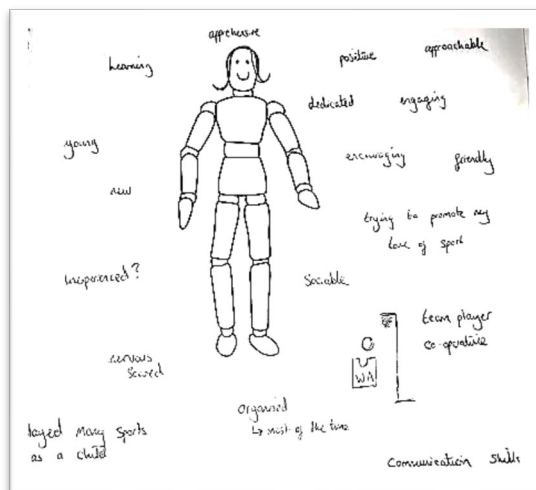 apprehensive
Learning
positive
approachable
dedicated
engaging
young
encouraging
friendly
new
trying to promote my
love of sport
Inexperienced?
Sociable
team player
co-operative
WA
nervous
scared
Organised
↳ most of the time
layed many sports
as a child
Communication skills